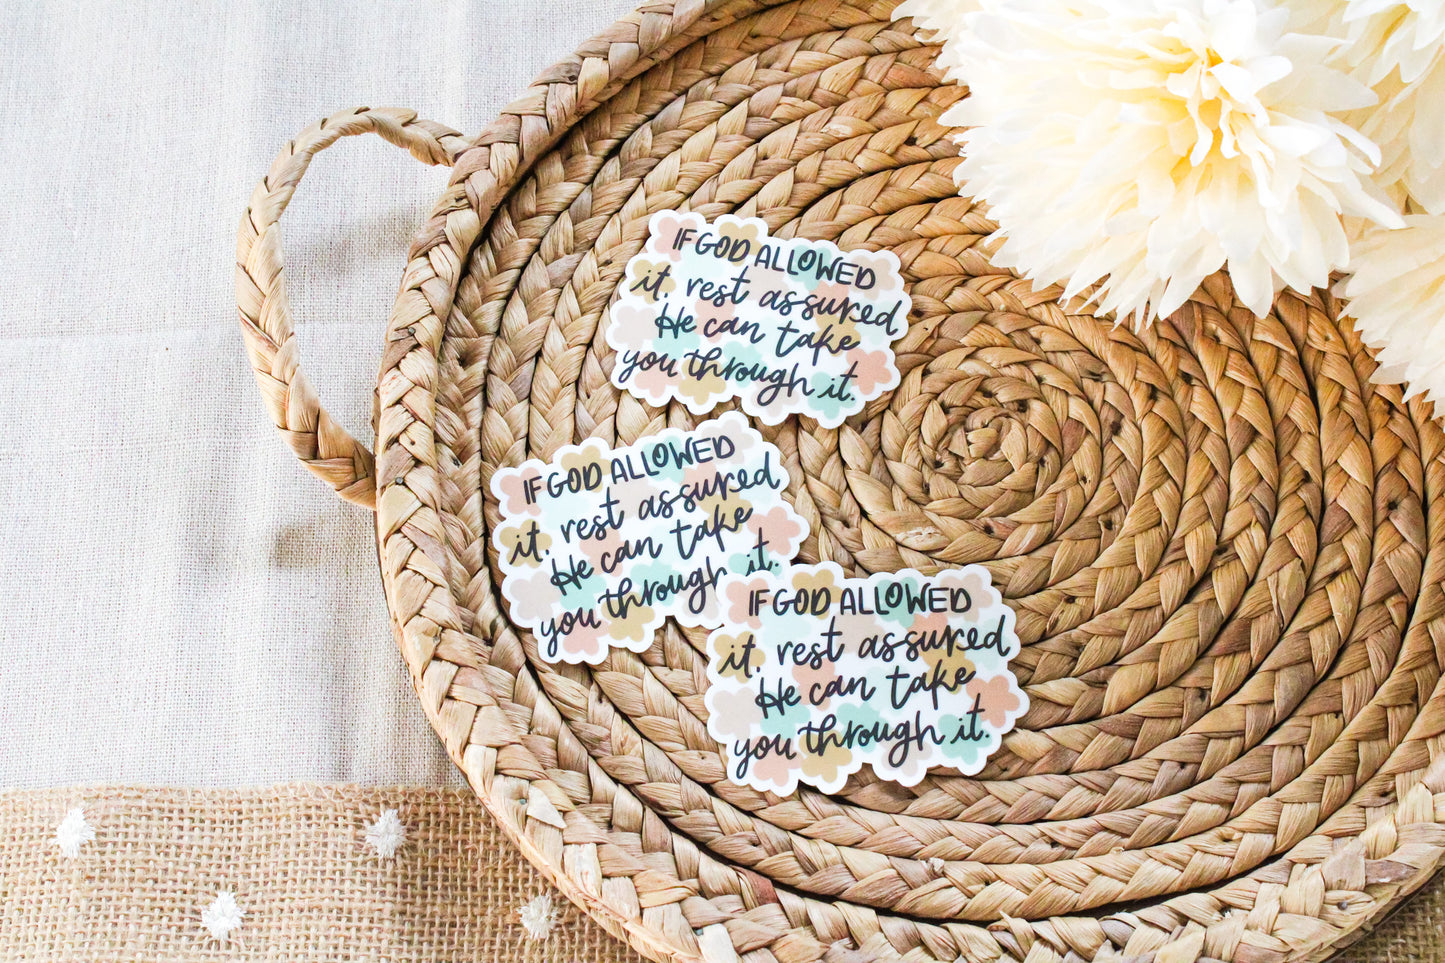 IF GOD ALLOWED
it, rest assured
He can take
you through it.
IF GOD ALLOWED
it, rest assured
He can take
you through it.
IF GOD ALLOWED
it, rest assured
He can take
you through it.